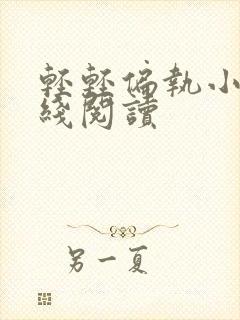 輕輕偏執小
綫閱讀
另一夏